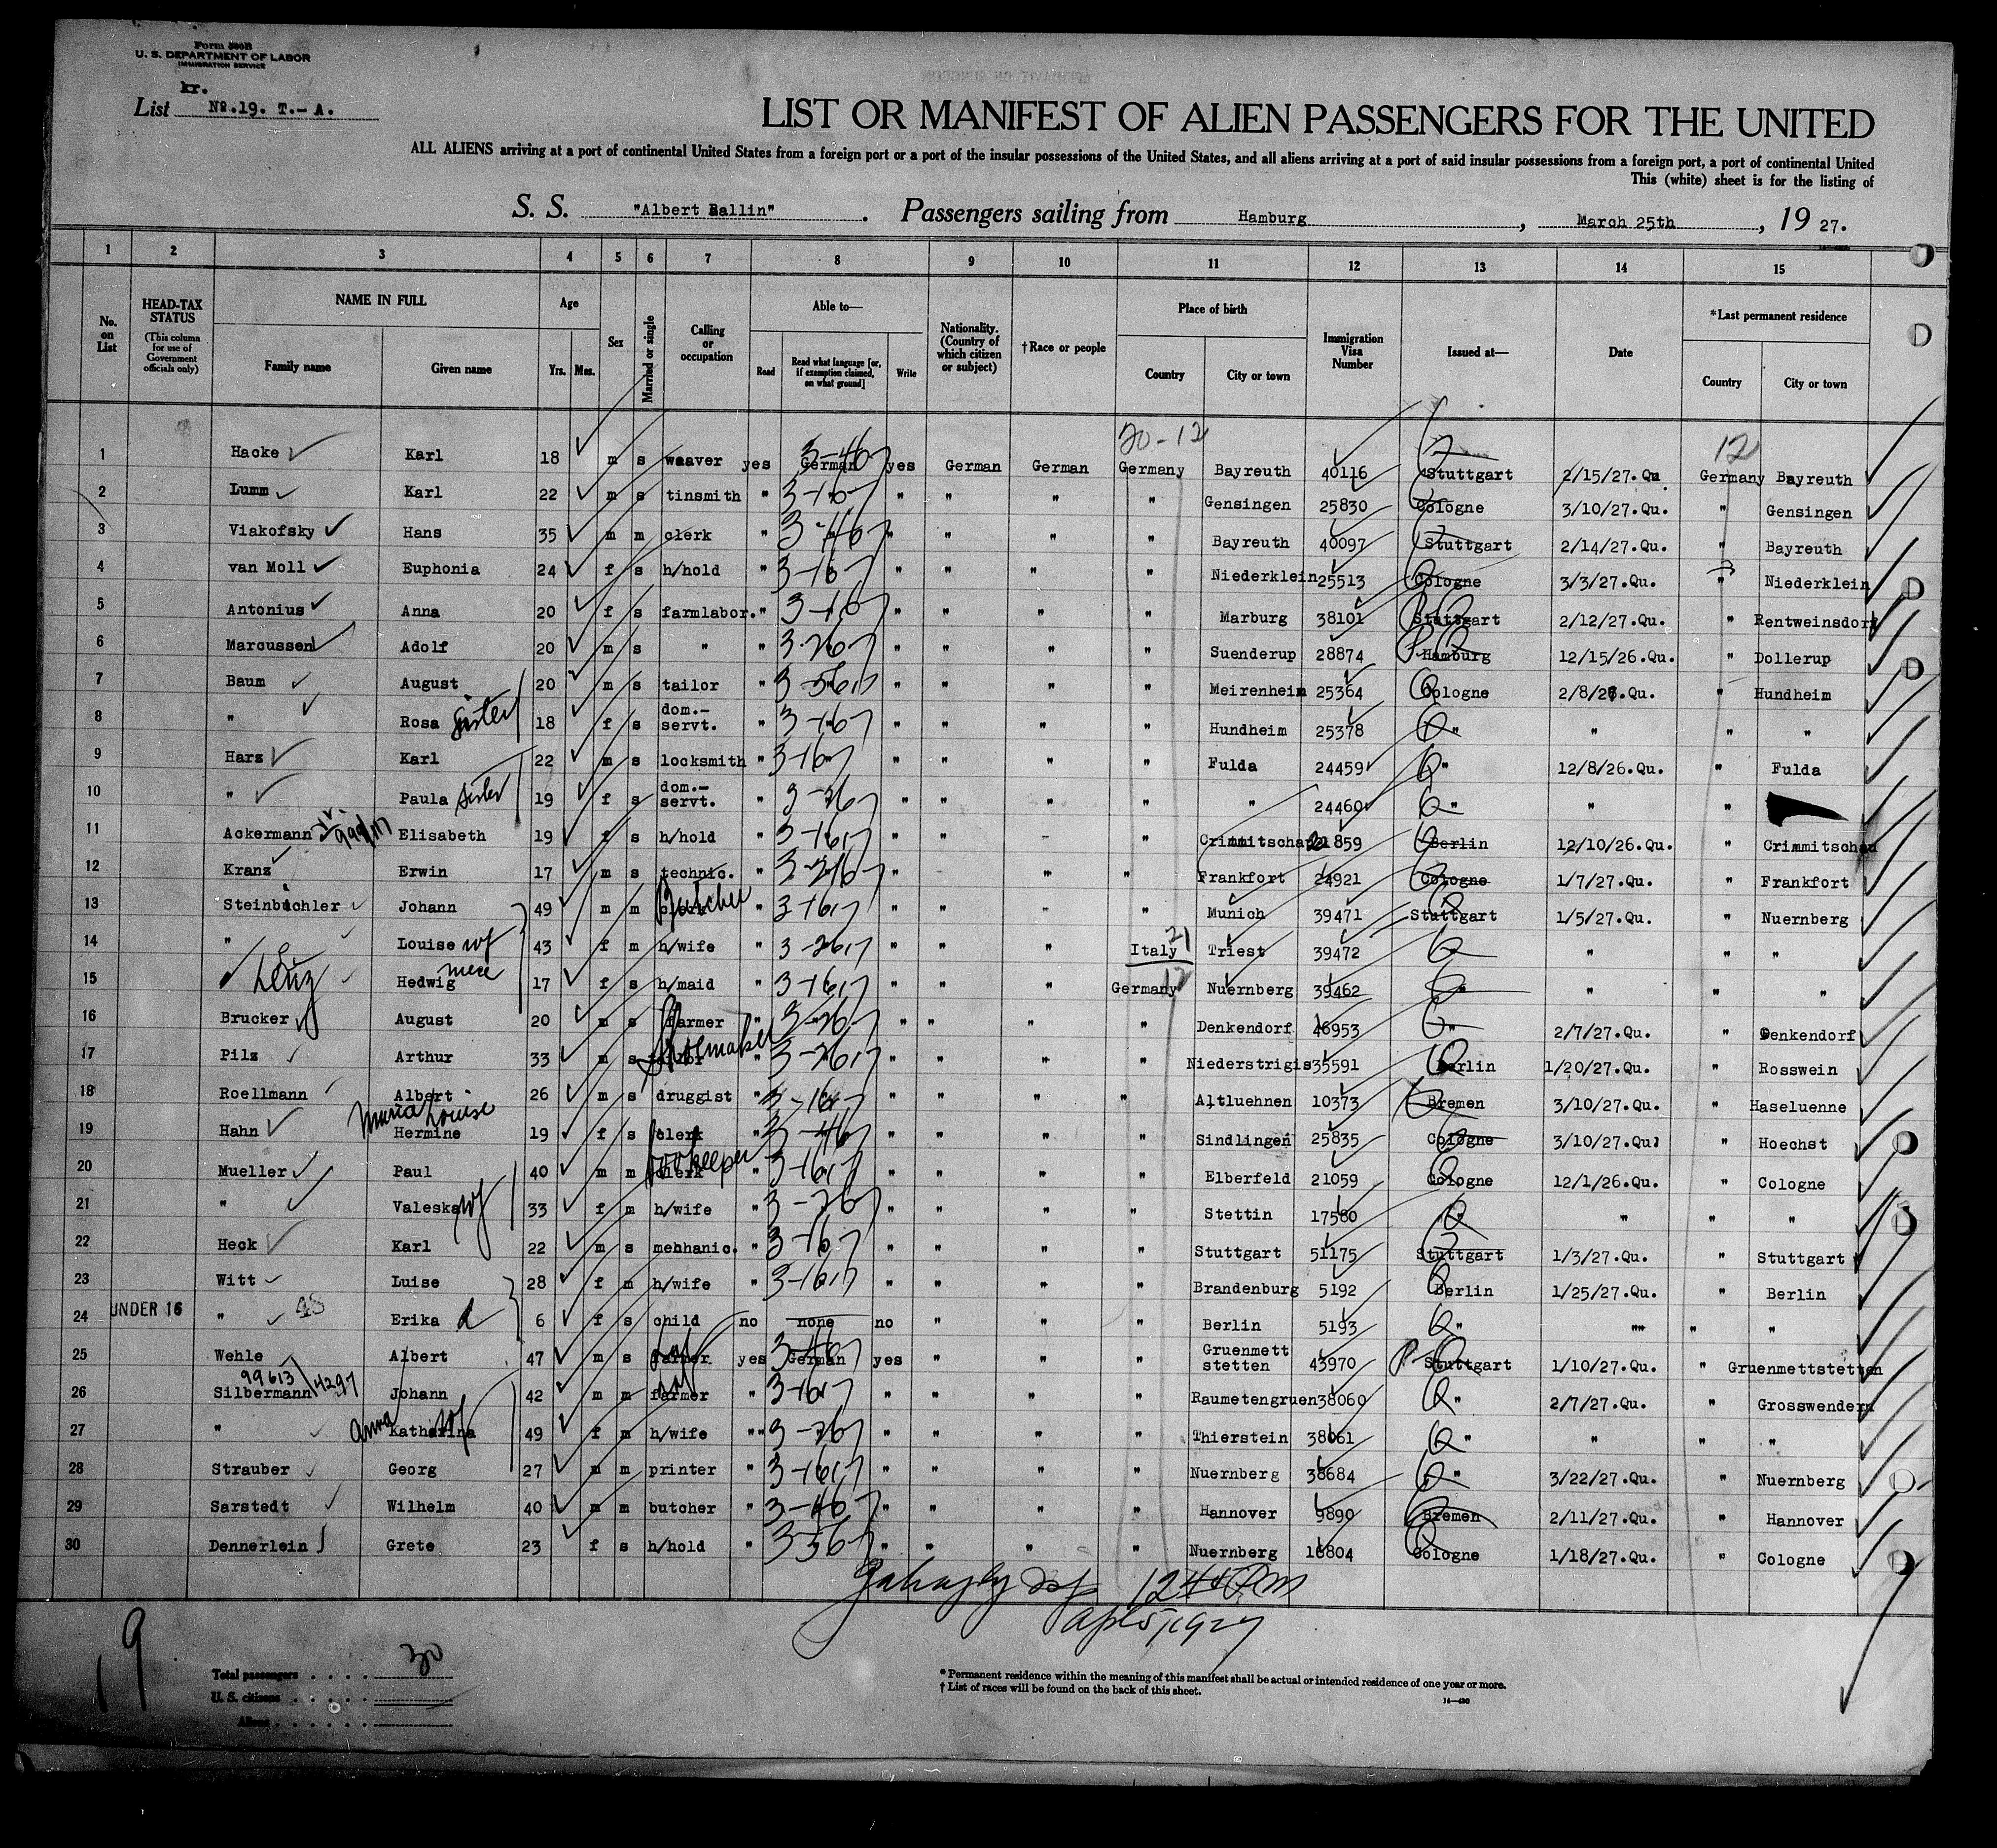 Form 500B
U. S. DEPARTMENT OF LABOR
IMMIGRATION SERVICE
kr.
List No.19. T.-A.
LIST OR MANIFEST OF ALIEN PASSENGERS FOR THE UNITED
ALL ALIENS arriving at a port of continental United States from a foreign port or a port of the insular possessions of the United States, and all aliens arriving at a port of said insular possessions from a foreign port, a port of continental United
This (white) sheet is for the listing of
S. S. "Albert Ballin". Passengers sailing from Hamburg, March 25th, 19 27.
1 2 3 4 5 6 7 8 9 10 11 12 13 14 15
No. on List HEAD-TAX STATUS (This column for use of Government officials only) NAME IN FULL Family name Given name Age Yrs. Mos. Sex Married or single Calling or occupation Able to— Read Read what language [or, if exemption claimed, on what ground] Write Nationality. (Country of which citizen or subject) †Race or people Place of birth Country City or town Immigration Visa Number Issued at— Date *Last permanent residence Country City or town
20-12 12
1 Hacke Karl 18 m s weaver yes German 3-46 yes German German Germany Bayreuth 40116 Stuttgart 2/15/27.Qu Germany Bayreuth
2 Lumm Karl 22 m s tinsmith " 3-16 " " " " Gensingen 25830 Cologne 3/10/27.Qu. " Gensingen
3 Viakofsky Hans 35 m m clerk " 3-46 " " " " Bayreuth 40097 Stuttgart 2/14/27.Qu. " Bayreuth
4 van Moll Euphonia 24 f s h/hold " 3-16 " " " " Niederklein 25513 Cologne 3/3/27.Qu. " Niederklein
5 Antonius Anna 20 f s farmlabor. " 3-16 " " " " Marburg 38101 Stuttgart 2/12/27.Qu. " Rentweinsdorf
6 Marcussen Adolf 20 m s " " 3-26 " " " " Suenderup 28874 Hamburg 12/15/26.Qu. " Dollerup
7 Baum August 20 m s tailor " 3-56 " " " " Meirenheim 25364 Cologne 2/8/27.Qu. " Hundheim
8 " Rosa sister 18 f s dom.-servt. " 3-16 " " " " Hundheim 25378 " " " "
9 Harz Karl 22 m s locksmith " 3-16 " " " " Fulda 24459 " 12/8/26.Qu. " Fulda
10 " Paula sister 19 f s dom.-servt. " 3-26 " " " " " 24460 " " "
11 Ackermann Elisabeth 19 f s h/hold " 3-16 " " - " Crimmitschau 21859 Berlin 12/10/26.Qu. " Crimmitschau
12 Kranz Erwin 17 m s technic. " 3-26 " " " " Frankfort 24921 Cologne 1/7/27.Qu. " Frankfort
13 Steinbuchler Johann 49 m m Butcher " 3-16 " " - " Munich 39471 Stuttgart 1/5/27.Qu. " Nuernberg
14 " Louise wf 43 f m h/wife " 3-26 " " " Italy 21 Triest 39472 " " "
15 Lenz Hedwig niece 17 f s h/maid " 3-16 " " " Germany 12 Nuernberg 39462 " " " "
16 Brucker August 20 m s farmer " 3-26 " " " " Denkendorf 46953 " 2/7/27.Qu. " Denkendorf
17 Pilz Arthur 33 m s tailor Shoemaker " 3-26 " " " " Niederstrigis 35591 Berlin 1/20/27.Qu. " Rosswein
18 Roellmann Albert 26 m s druggist " 3-16 " " " " Altluehnen 10373 Bremen 3/10/27.Qu. " Haseluenne
19 Hahn Maria Louise Hermine 19 f s clerk " 3-46 " " " " Sindlingen 25835 Cologne 3/10/27.Qu. " Hoechst
20 Mueller Paul 40 m m clerk bookkeeper " 3-16 " " " " Elberfeld 21059 Cologne 12/1/26.Qu. " Cologne
21 " Valeska wf 33 f m h/wife " 3-26 " " " " Stettin 17560 " " " "
22 Heck Karl 22 m s mehhanic. " 3-16 " " " " Stuttgart 51175 Stuttgart 1/3/27.Qu. " Stuttgart
23 Witt Luise 28 f m h/wife " 3-16 " " " " Brandenburg 5192 Berlin 1/25/27.Qu. " Berlin
24 UNDER 16 " 48 Erika d 6 f s child no none no " " " Berlin 5193 " " " "
25 Wehle Albert 47 m s farmer yes German 3-46 yes " " " Gruenmett stetten 43970 Stuttgart 1/10/27.Qu. " Gruenmettstetten
26 99613/4297 Silbermann Johann 42 m m farmer " 3-16 " " " " Raumetengruen 38060 " 2/7/27.Qu. " Grosswendern
27 " Anna Katharina wf 49 f m h/wife " " 3-26 " " " " Thierstein 38061 " " " "
28 Strauber Georg 27 m m printer " 3-16 " " " " Nuernberg 38684 " 3/22/27.Qu. " Nuernberg
29 Sarstedt Wilhelm 40 m m butcher " 3-46 " " " " Hannover 9890 Bremen 2/11/27.Qu. " Hannover
30 Dennerlein Grete 23 f s h/hold " 3-56 " " " " Nuernberg 16804 Cologne 1/18/27.Qu. " Cologne
1245 PM
Apl 5, 1927
19
Total passengers . . . . 30
U. S. citizens . . . . .
Aliens . . . . . .
* Permanent residence within the meaning of this manifest shall be actual or intended residence of one year or more.
† List of races will be found on the back of this sheet.
14—430